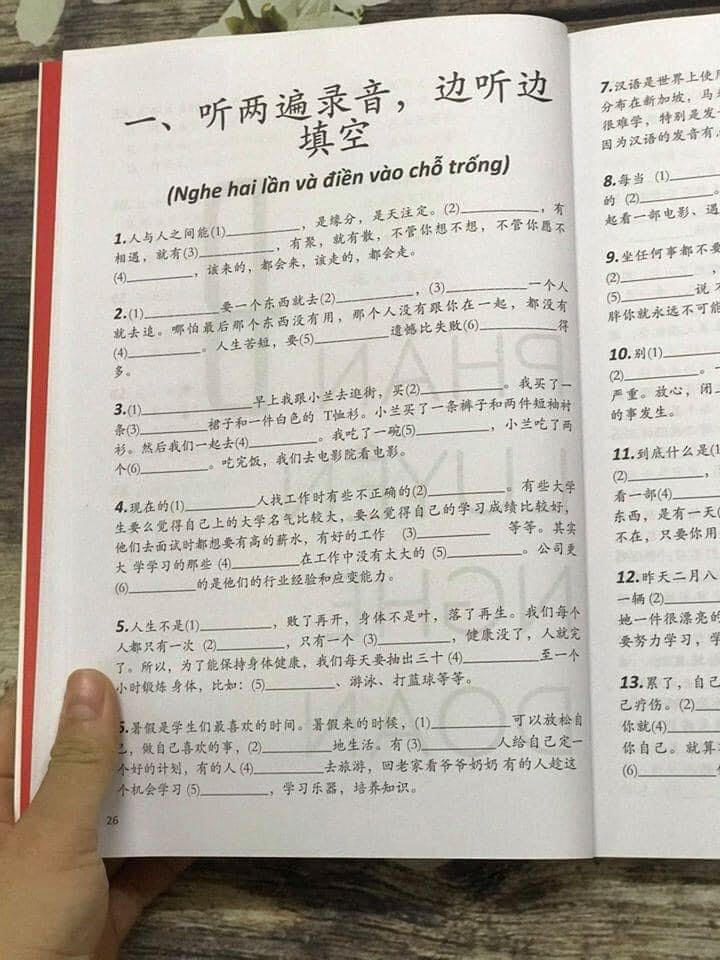 一、听两遍录音，边听边
填空
(Nghe hai lần và điền vào chỗ trống)
1.人与人之间能(1)__________，是缘分，是天注定。(2)__________，有
相遇，就有(3)__________，有聚，就有散，不管你想不想，不管你愿不
(4)__________，该来的，都会来，该走的，都会走。
2.(1)__________要一个东西就去(2)__________，(3)__________一个人
就去追。哪怕最后那个东西没有用，那个人没有跟你在一起，都没有
(4)__________。人生苦短，要(5)__________遗憾比失败(6)__________得
多。
3.(1)__________早上我跟小兰去逛街，买(2)__________。我买了一
条(3)__________裙子和一件白色的 T恤衫。小兰买了一条裤子和两件短袖衬
衫。然后我们一起去(4)__________。我吃了一碗(5)__________，小兰吃了两
个(6)__________。吃完饭，我们去电影院看电影。
4.现在的(1)__________人找工作时有些不正确的(2)__________。有些大学
生要么觉得自己上的大学名气比较大，要么觉得自己的学习成绩比较好，
他们去面试时都想要有高的薪水，有好的工作 (3)__________ 等等。其实
大 学学习的那些 (4)__________在工作中没有太大的 (5)__________。公司更
(6)__________的是他们的行业经验和应变能力。
5.人生不是(1)__________，败了再开，身体不是叶，落了再生。我们每个
人都只有一次 (2)__________，只有一个 (3)__________，健康没了，人就完
了。所以，为了能保持身体健康，我们每天要抽出三十 (4)__________至一个
小时锻炼 身体，比如：(5)__________、游泳、打蓝球等等。
6.暑假是学生们最喜欢的时间。暑假来的时候，(1)__________可以放松自
己，做自己喜欢的事，(2)__________地生活。有 (3)__________人给自己定一
个好的计划，有的人 (4)__________去旅游，回老家看爷爷奶奶 有的人趁这
个机会学习 (5)__________，学习乐器，培养知识。
26
PHẦN
LUYỆN
NGHE
ĐOẠN
7.汉语是世界上使用
分布在新加坡，马
很难学，特别是发
因为汉语的发音有
8.每当 (1)__________
的 (2)__________
起看一部电影、遇
9.坐任何事都不要
(2)__________，
(5)__________说 不
胖你就永远不可能
10.别(1)__________
(2)__________。一
严重。放心，闭
的事发生。
11.到底什么是(1
(2)__________，
看一部(4)__________
东西，是有一天(
不在，只要你用
12.昨天二月八
一辆 (2)__________
她一件很漂亮的
要努力学习，学
13.累了，自己
己疗伤。(2)__________
你就(4)__________
你自己。就算
(6)__________